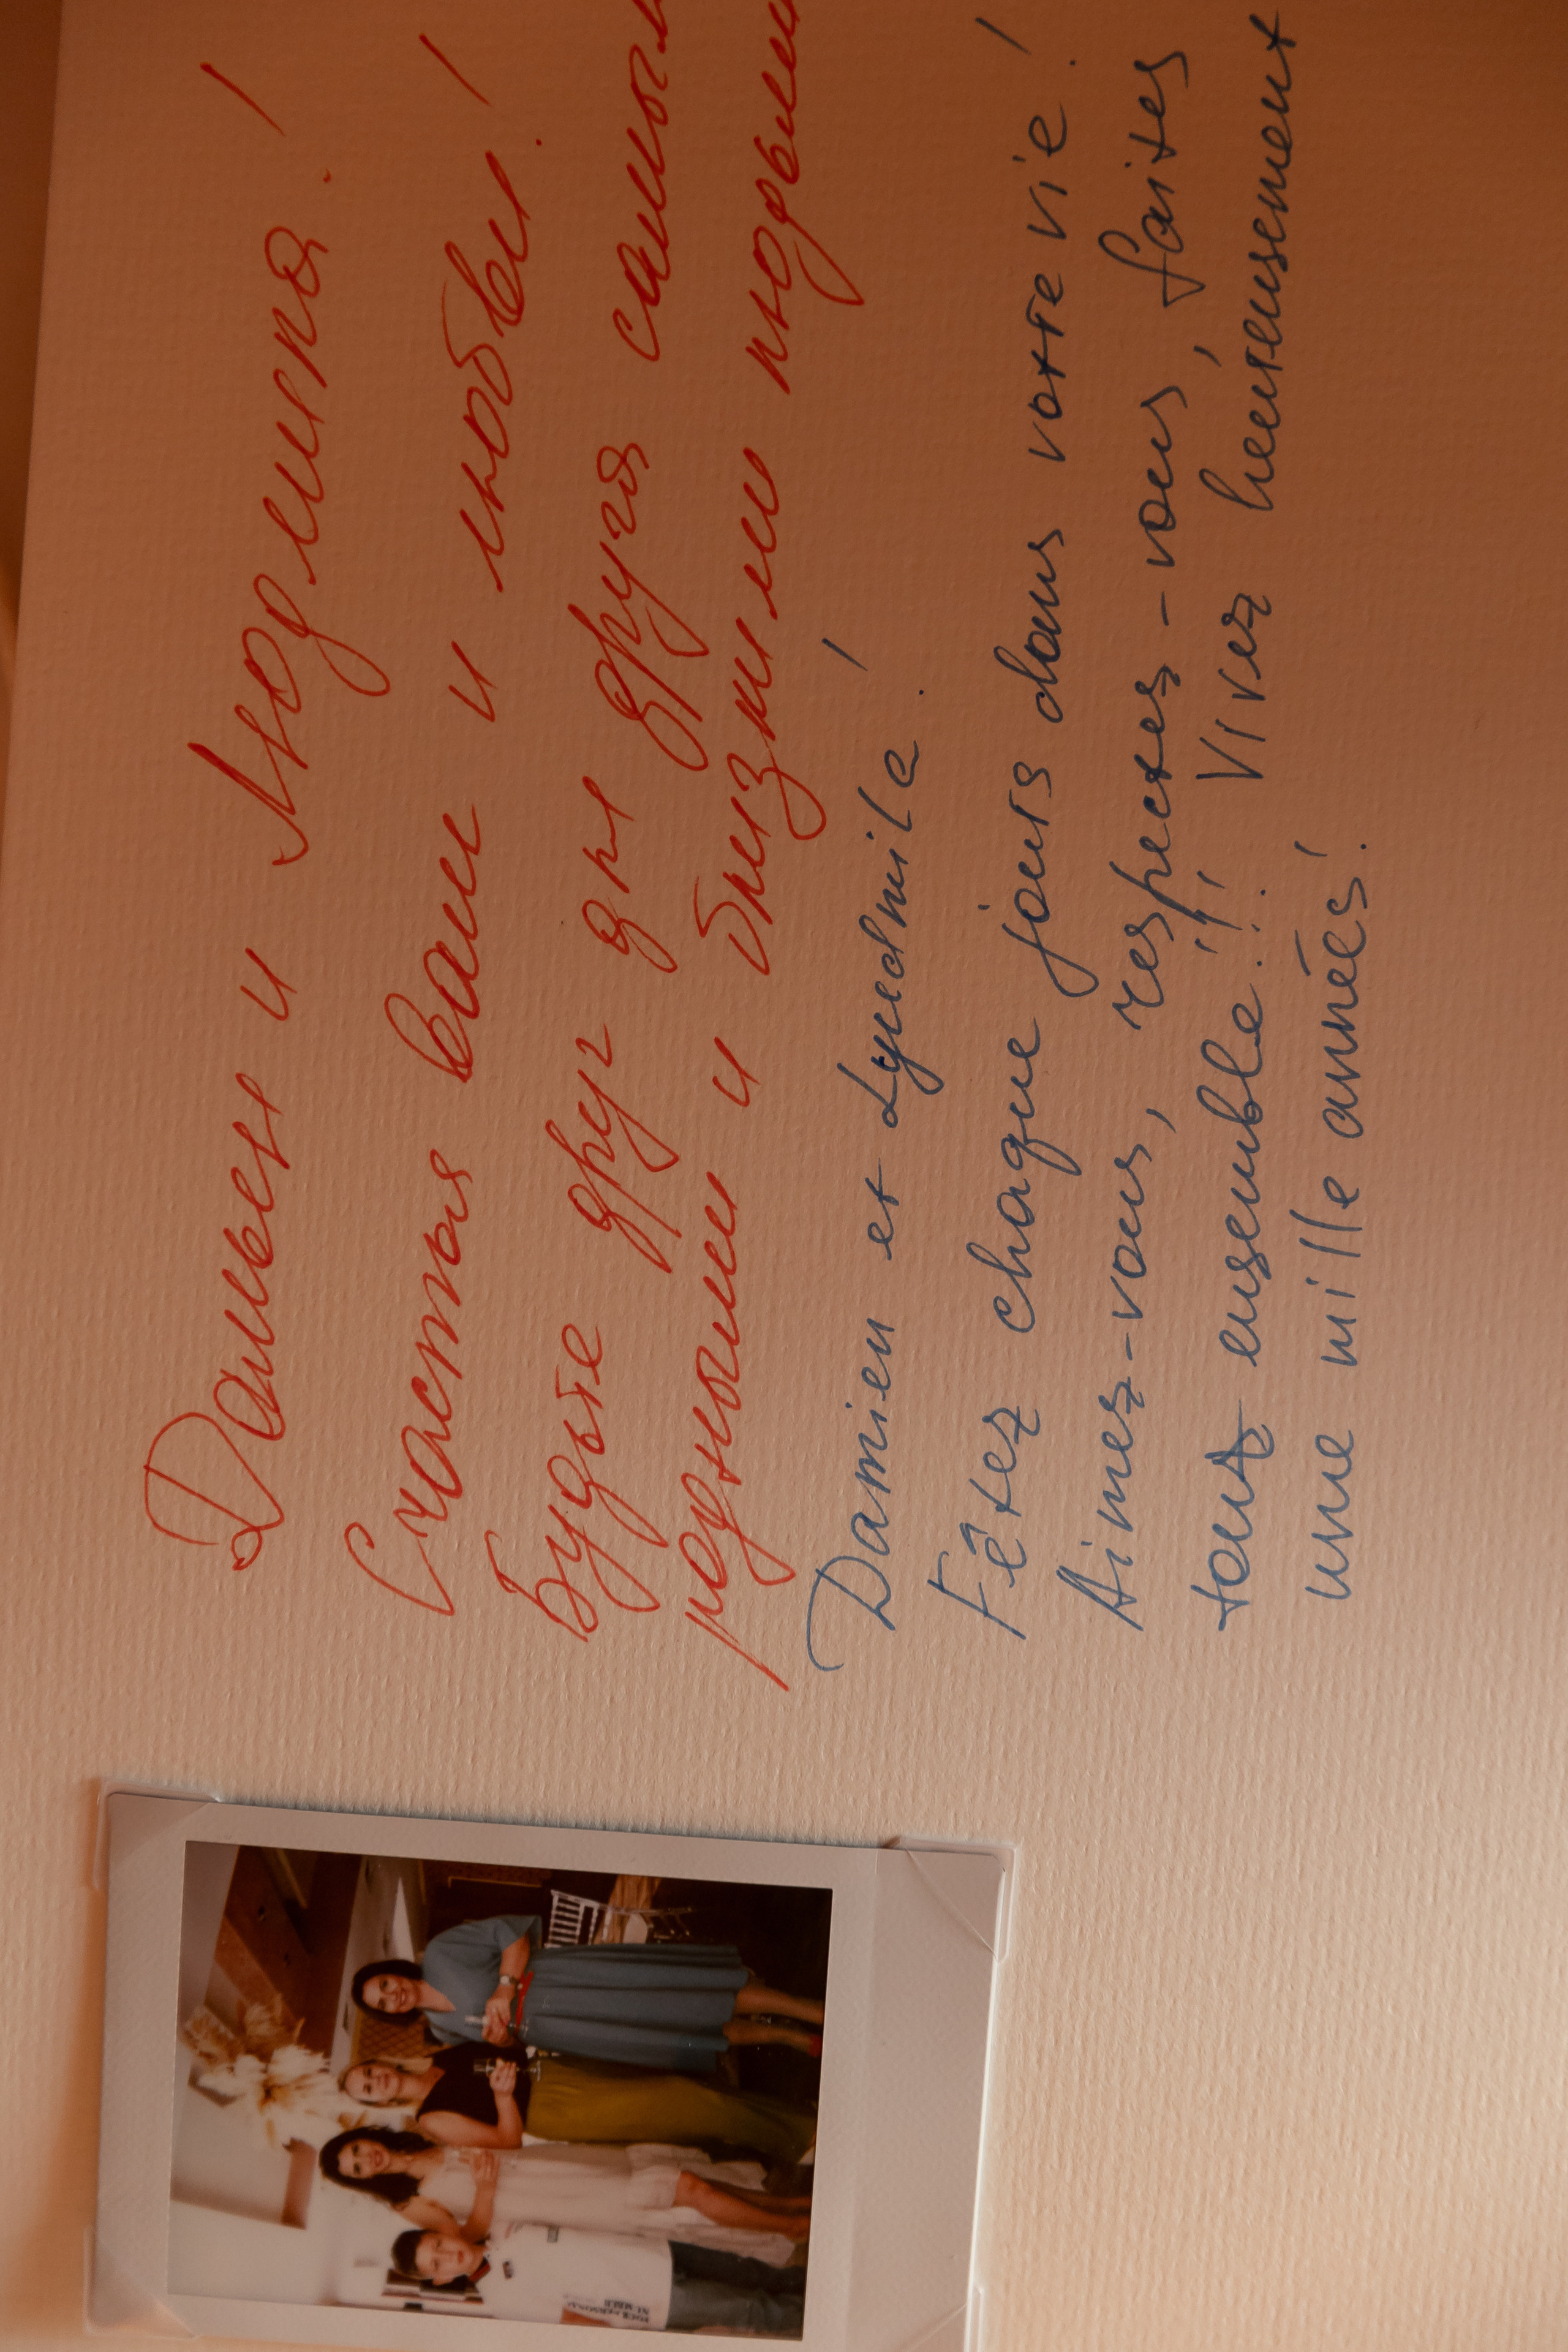 Дамьен и Людмила!
Счастья вам и любви!
Будьте друг для друга самыми
родными и близкими людьми
Damien et Lyudmila!
Fêtez chaque jours dans votre vie!
Aimez-vous, respectez-vous, faites
tout ensemble!!! Vivez heureusement
une mille années!